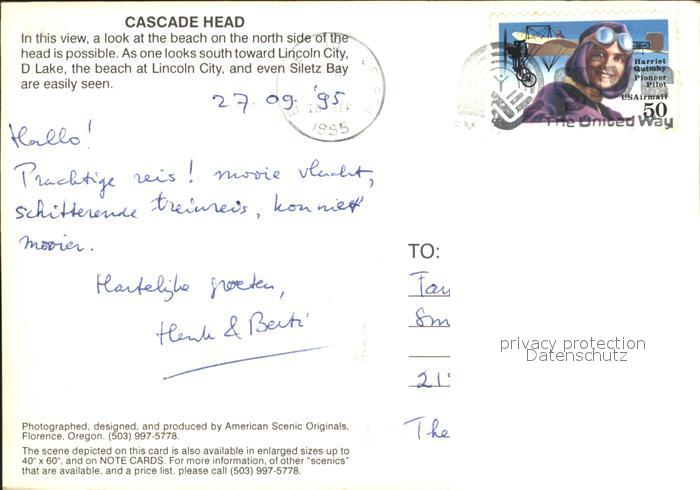 CASCADE HEAD
In this view, a look at the beach on the north side of the
head is possible. As one looks south toward Lincoln City,
D Lake, the beach at Lincoln City, and even Siletz Bay
are easily seen.
27.09.'95
1995
Harriet
Quimby
Pioneer
Pilot
USAirmail
50
The United Way
Hallo!
Prachtige reis! mooie vlucht,
schitterende treinreis, kon niet
mooier.
Hartelijke groeten,
Henk & Berti
TO:
Fam
Sm
21
The
privacy protection
Datenschutz
Photographed, designed, and produced by American Scenic Originals,
Florence, Oregon. (503) 997-5778.
The scene depicted on this card is also available in enlarged sizes up to
40" x 60", and on NOTE CARDS. For more information, of other "scenics"
that are available, and a price list, please call (503) 997-5778.